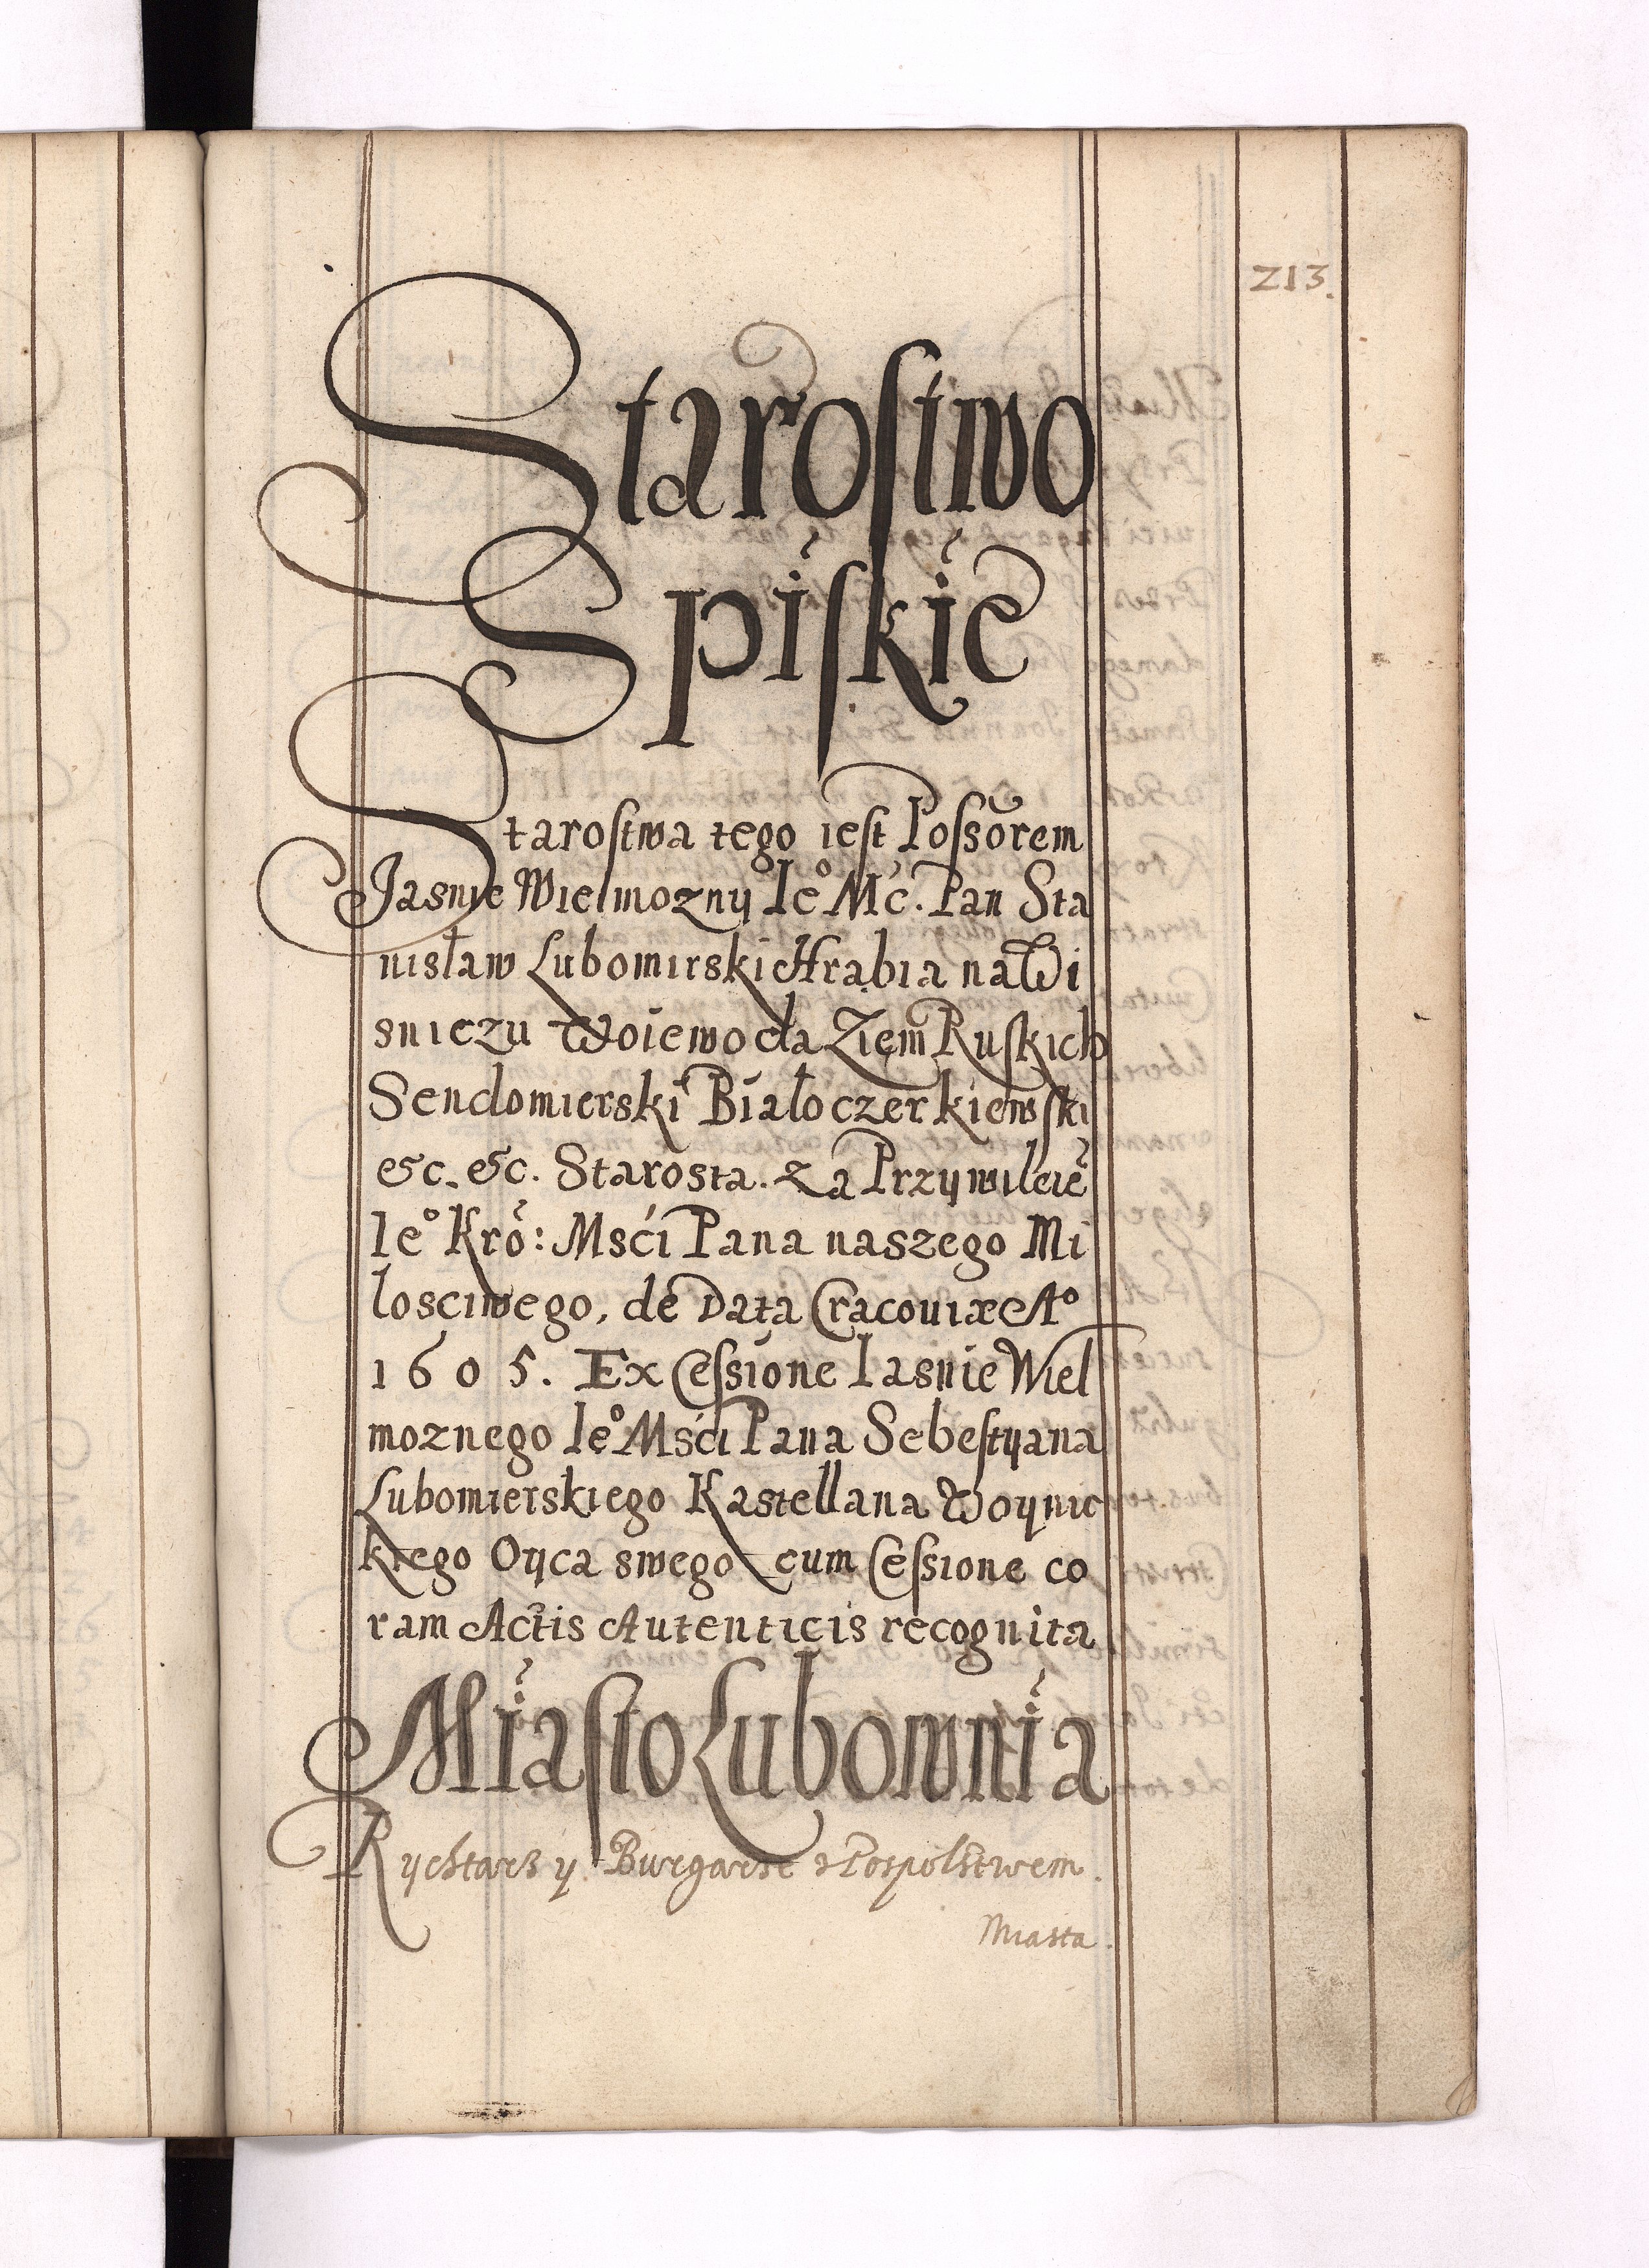 213.
Starostwo
Spiskie
Starostwa tego iest Possorem
Jasnie Wielmozny Ie° Mć. Pan Sta
nisław Lubomirski Hrabia na Wi
sniczu Woiewoda Ziem Ruskich
Sendomierski Białoczerkiewski
&c. &c. Starosta. Za Przywileiē
Ie° Kró: Mści Pana naszego Mi
losciwego, de Data Cracouiæ A°
1605. Ex Cessione Iasnie Wiel
moznego Ie° Mści Pana Sebestyana
Lubomierskiego Kastellana Woynic
kiego Oyca swego cum Cessione co
ram Actis Autenticis recognita
Miasto Lubownia
Rychtarz y Burgarze z Pospolstwem.
Miasta.